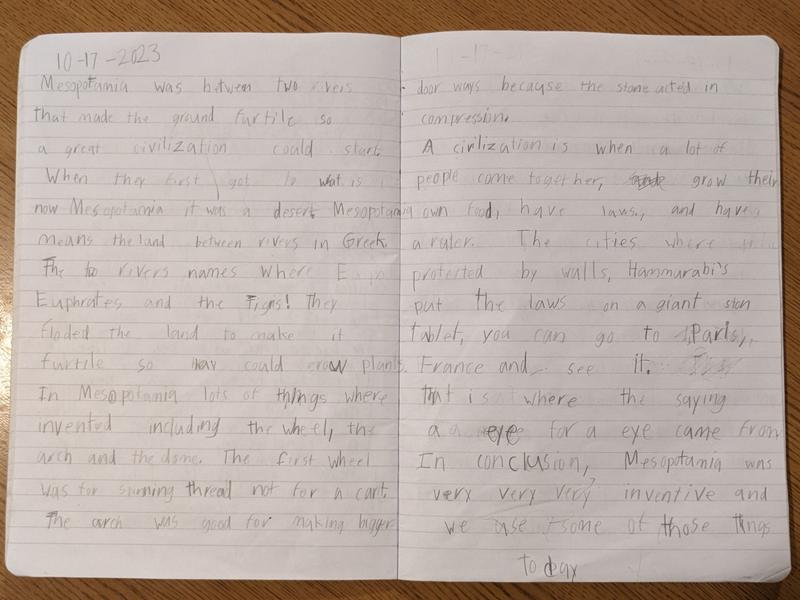 10-17-2023
Mesopotamia was between two rivers
that made the ground furtile so
a great civilization could start.
When they first got to wat is
now Mesopotamia it was a desert. Mesopotamia
means the land between rivers in Greek.
The two rivers names where
Euphrates and the Tigris! They
floded the land to make it
furtile so they could grow plants.
In Mesopotamia lots of things where
invented including the wheel, the
arch and the dome. The first wheel
was for spinning thread not for a cart.
The arch was good for making bigger
door ways because the stone acted in
compression.
A civilization is when a lot of
people come together, grow their
own food, have laws, and have
a ruler. The cities where
protected by walls, Hammurabi's
put the laws on a giant ston
tablet, you can go to Paris,
France and see it.
That is where the saying
a eye for a eye came from
In conclusion, Mesopotamia was
very very very inventive and
we use some of those things
today